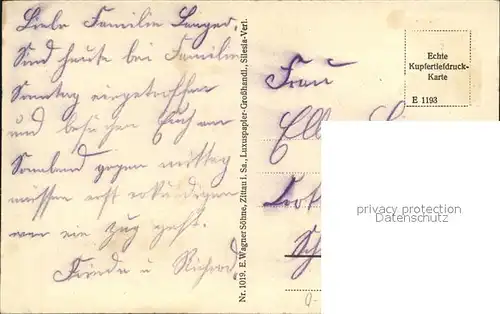 Liebe Familie Langer.
Sind heute bei Familie
Sonntag eingetroffen
und besuchen Euch am
Sonnabend gegen mittag
müssen erst erkundigen
wan ein Zug geht.
Frieda u Richard
Nr. 1019. E. Wagner Söhne, Zittau i. Sa., Luxuspapier-Großhandl., Silesia-Verl.
Echte
Kupfertiefdruck-
Karte
E 1193
Frau
privacy protection
Datenschutz